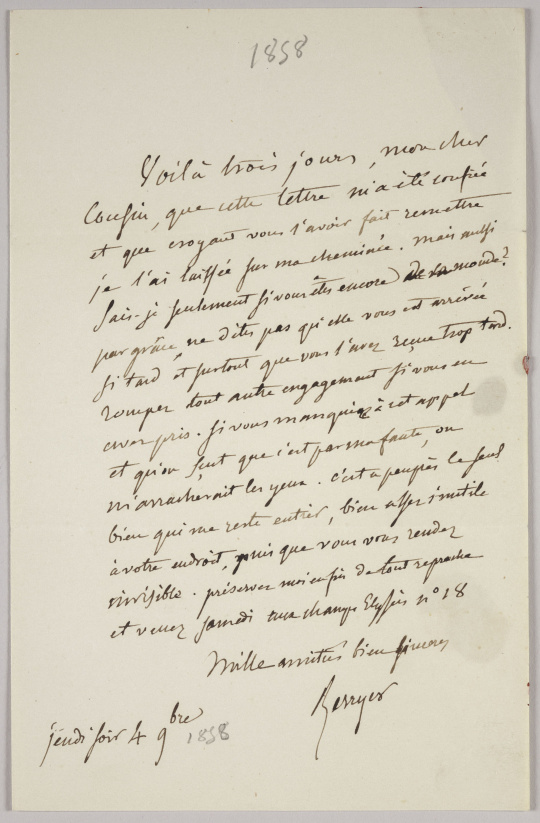 1858
Voilà trois jours, mon cher
Cousin, que cette lettre m'a été confiée
et que croyant vous l'avoir fait remettre
je l'ai laissée sur ma cheminée. mais aussi
sais-je seulement si vous êtes encore de ce monde?
par grâce, ne dites pas qu'elle vous est arrivée
si tard et surtout que vous l'avez reçue trop tard.
rompez tout autre engagement si vous en
avez pris. si vous manquiez à cet appel
et qu'on sçut que c'est par ma faute, on
m'arracherait les yeux. c'est à peu près le seul
bien qui me reste entier, bien assez inutile
à votre endroit, puis que vous vous rendez
invisible. préservez moi enfin de tout reproche
et venez samedi aux champs Elysées n° 18
Mille amitiés bien sincères
Berryer
jeudi soir 4 9bre 1858